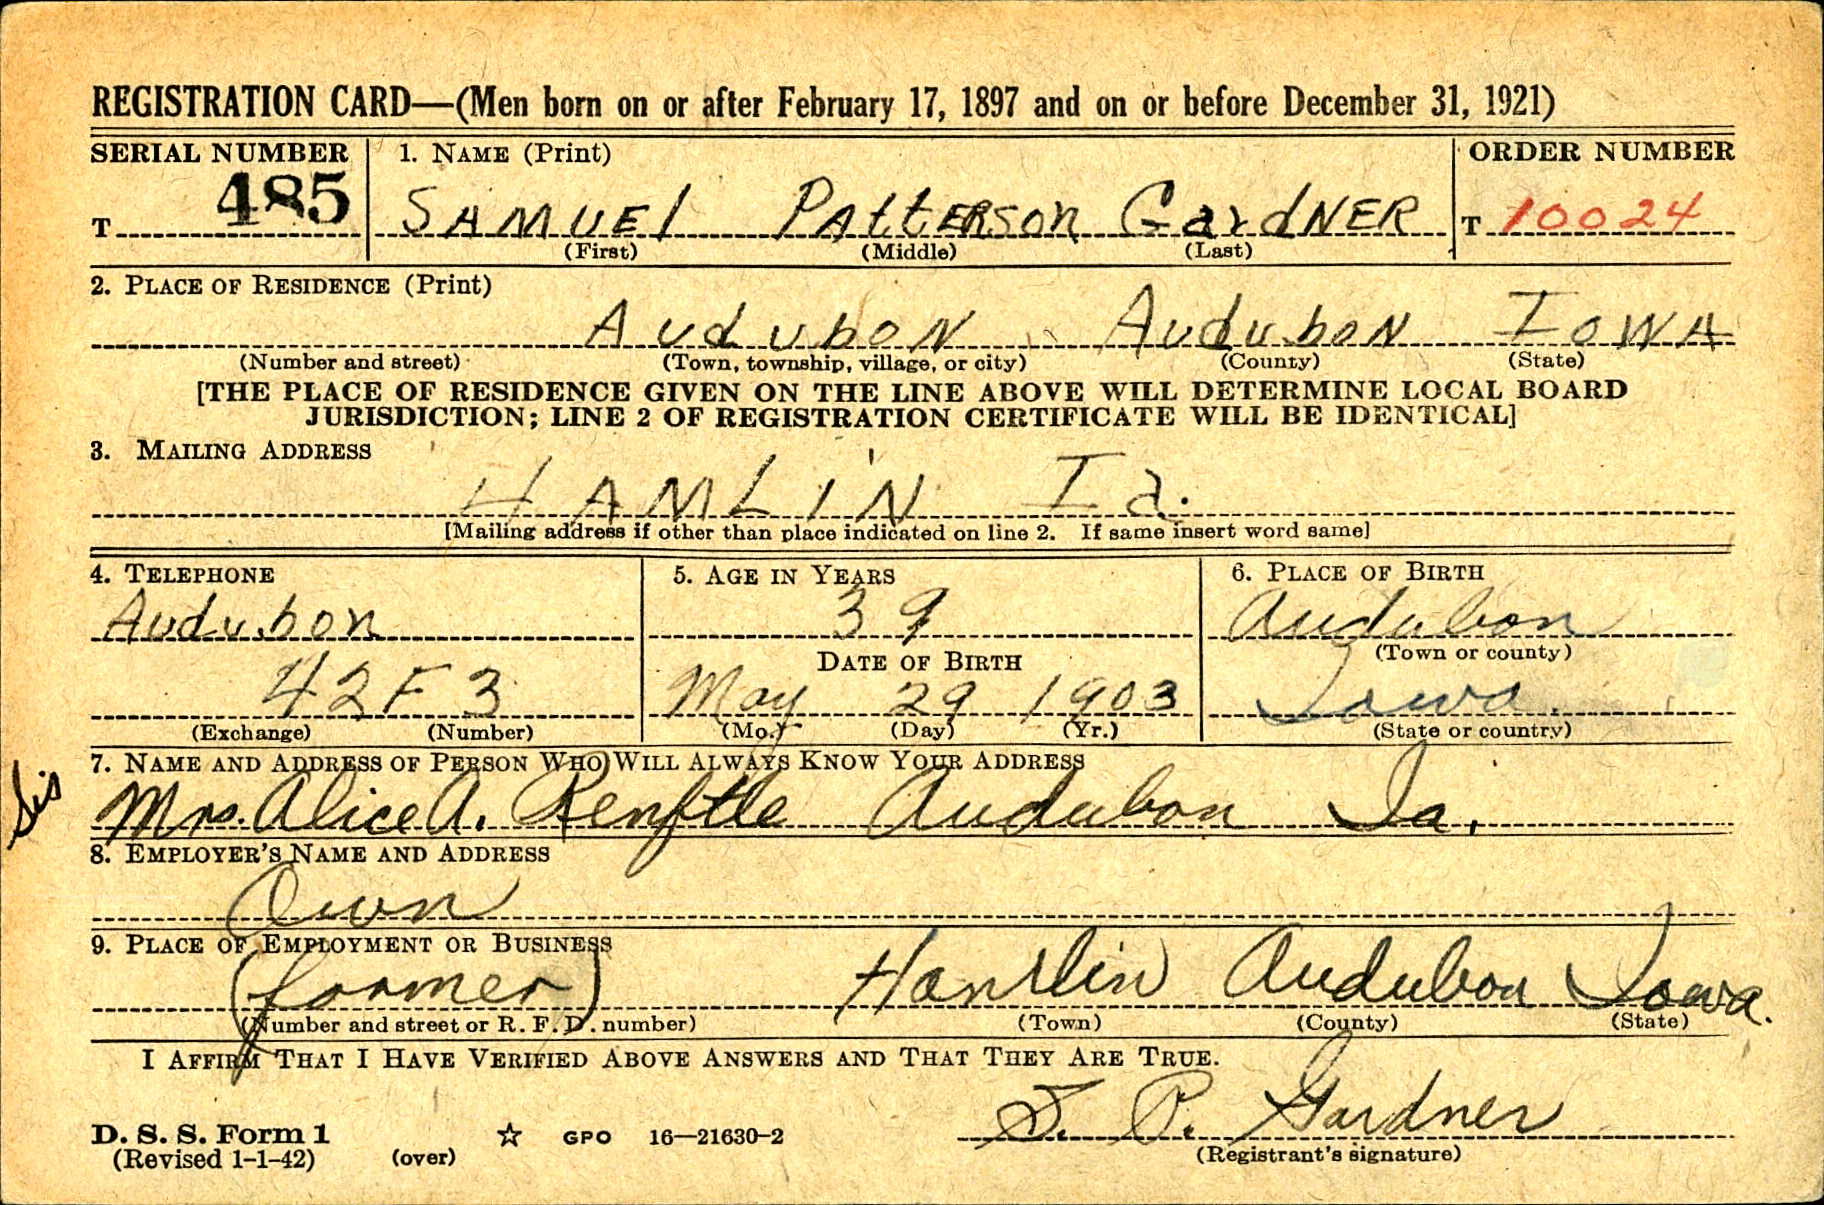 REGISTRATION CARD—(Men born on or after February 17, 1897 and on or before December 31, 1921)
SERIAL NUMBER 1. NAME (Print) ORDER NUMBER
T 485 SAMUEl PAttERSon GardNER T 10024
(First) (Middle) (Last)
2. PLACE OF RESIDENCE (Print)
AuduboN AuduboN IoWA
(Number and street) (Town, township, village, or city) (County) (State)
[THE PLACE OF RESIDENCE GIVEN ON THE LINE ABOVE WILL DETERMINE LOCAL BOARD
JURISDICTION; LINE 2 OF REGISTRATION CERTIFICATE WILL BE IDENTICAL]
3. MAILING ADDRESS
HAMLiN Ia.
[Mailing address if other than place indicated on line 2. If same insert word same]
4. TELEPHONE 5. AGE IN YEARS 6. PLACE OF BIRTH
Audubon 39 Audubon
DATE OF BIRTH (Town or county)
42F3 May 29 1903 Iowa.
(Exchange) (Number) (Mo.) (Day) (Yr.) (State or country)
7. NAME AND ADDRESS OF PERSON WHO WILL ALWAYS KNOW YOUR ADDRESS
Sis Mrs. Alice A. Renftle Audubon Ia.
8. EMPLOYER'S NAME AND ADDRESS
Own
9. PLACE OF EMPLOYMENT OR BUSINESS
(farmer) Hamlin Audubon Iowa.
(Number and street or R. F. D. number) (Town) (County) (State)
I AFFIRM THAT I HAVE VERIFIED ABOVE ANSWERS AND THAT THEY ARE TRUE.
S. P. Gardner
D. S. S. Form 1 ☆ GPO 16—21630-2
(Revised 1-1-42) (over) (Registrant's signature)